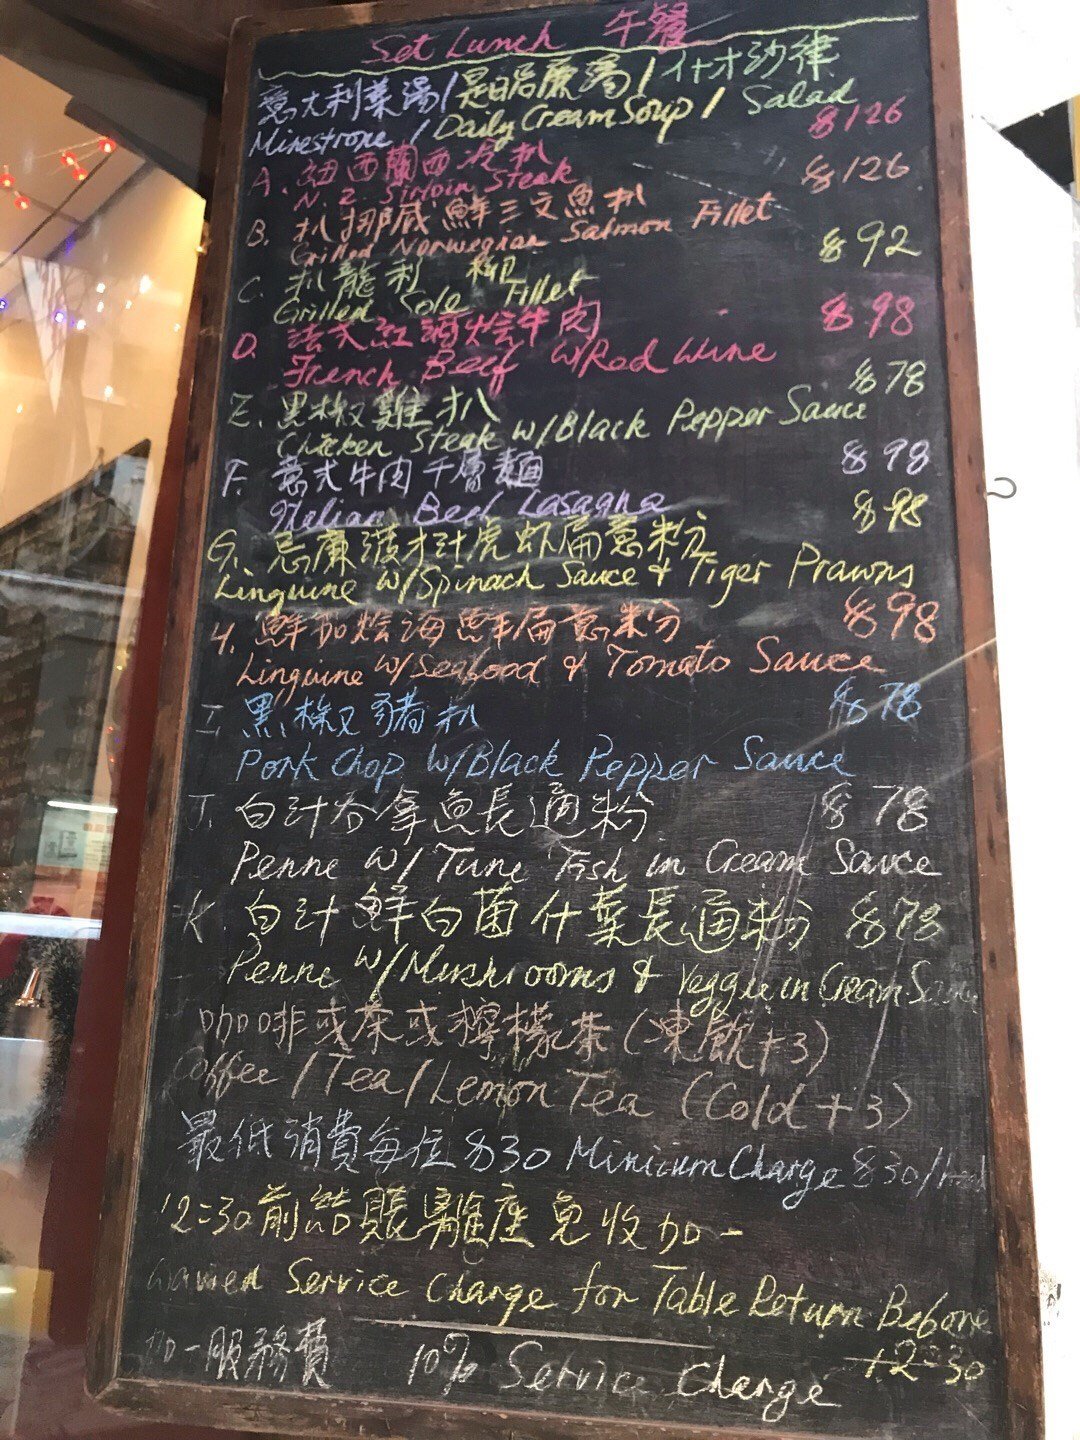 Set Lunch 午餐
意大利菜湯/是日忌廉湯/什才沙律
Minestrone / Daily Cream Soup / Salad
A. 紐西蘭西冷扒 $126
N.Z. Sirloin Steak
B. 扒挪威鮮三文魚扒 $126
Grilled Norwegian Salmon Fillet
C. 扒龍利柳 $92
Grilled Sole Fillet
D. 法式紅酒燴牛肉 $98
French Beef w/Red Wine
E. 黑椒雞扒 $78
Chicken Steak w/Black Pepper Sauce
F. 意式牛肉千層麵 $98
Italian Beef Lasagna
G. 忌廉菠才汁虎虾扁意粉 $98
Linguine w/Spinach Sauce & Tiger Prawns
H. 鮮茄燴海鮮扁意粉 $98
Linguine w/Seafood & Tomato Sauce
I 黑椒豬扒 $78
Pork Chop w/Black Pepper Sauce
J. 白汁吞拿魚長通粉 $78
Penne w/ Tune Fish in Cream Sauce
K. 白汁鮮白菌什菜長通粉 $78
Penne w/Mushrooms & Veggie in Cream Sauce
咖啡或茶或檸檬茶(凍飲+3)
Coffee / Tea / Lemon Tea (Cold +3)
最低消費每位$30 Minicum Charge $30/
12:30前結賬離座免收加一
Service Charge for Table Return Before
12:30
加一服務費 10% Service Charge